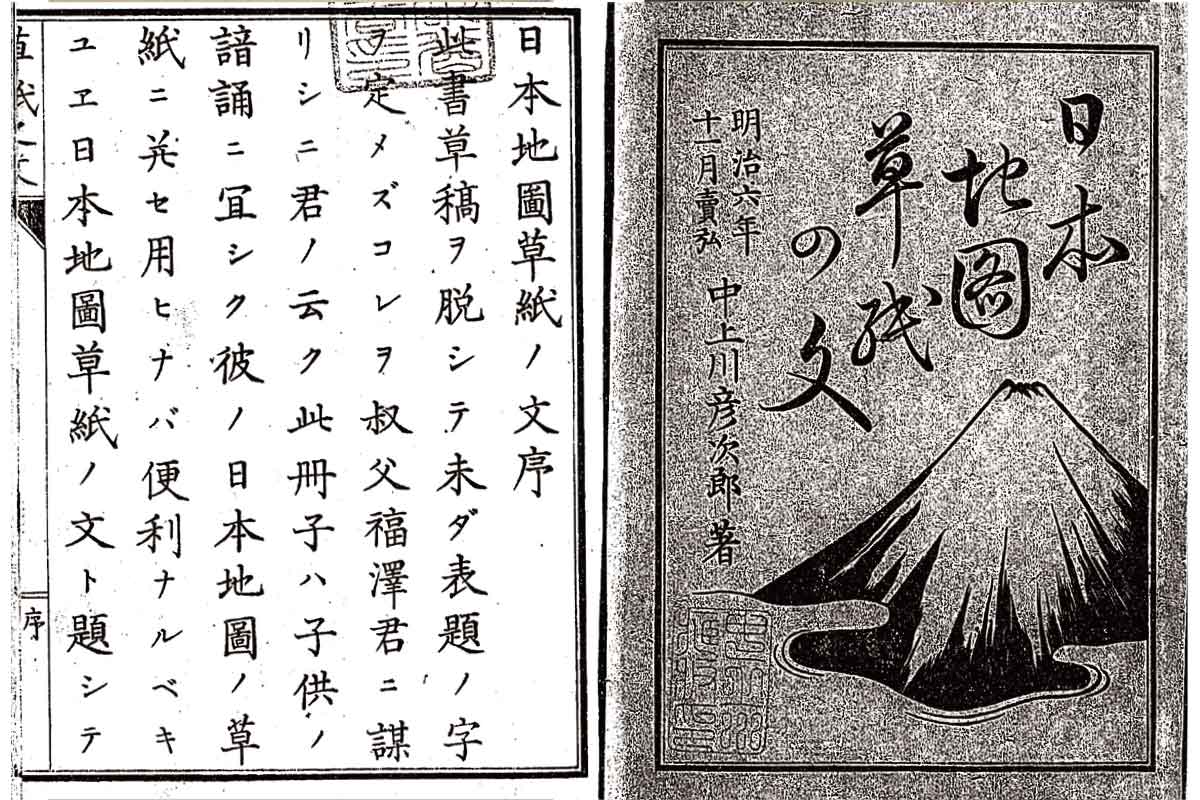 日本
地圖
草紙
の文
明治六年
十一月賣弘
中上川彦次郎著
日本地圖草紙ノ文序
此書草稿ヲ脱シテ未ダ表題ノ字
ヲ定メズコレヲ叔父福澤君ニ謀
リシニ君ノ云ク此冊子ハ子供ノ
諳誦ニ冝シク彼ノ日本地圖ノ草
紙ニ并セ用ヒナバ便利ナルベキ
ユヱ日本地圖草紙ノ文ト題シテ
序